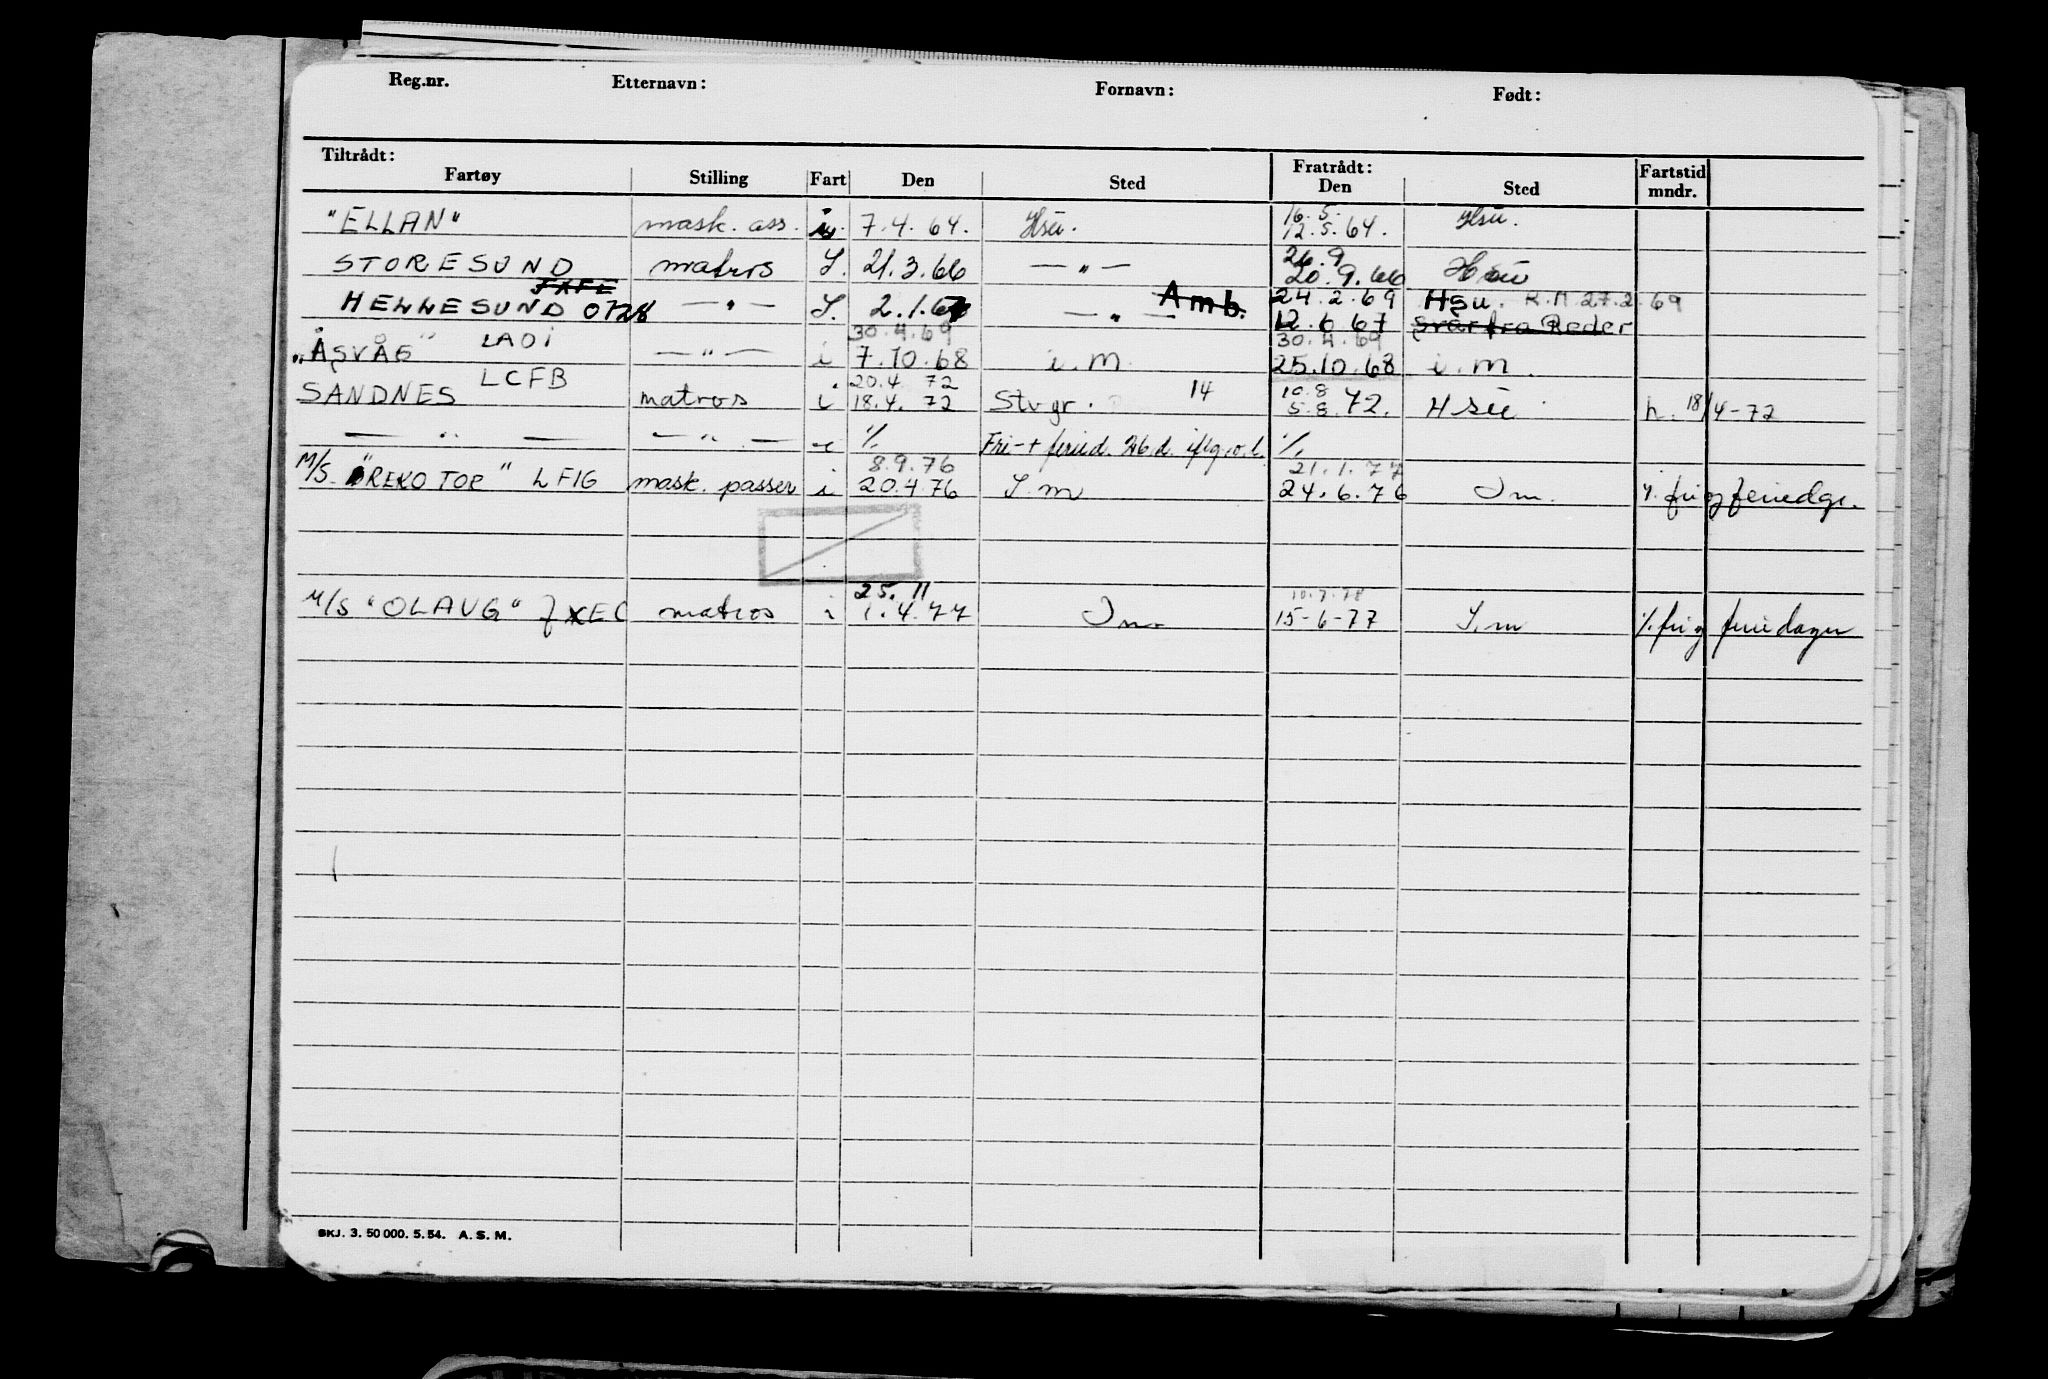 Reg.nr. Etternavn: Fornavn: Født:
Tiltrådt: Fratrådt:
Fartøy Stilling Fart Den Sted Den Sted Fartstid mndr.
16.5.
"ELLAN" mask. ass. 7.4.64. Hsu. 12.5.64. Hsu.
26.9
STORESUND matros S. 21.3.66 — " — 20.9.66 Hsu
Amb. 24.2.69 Hsu. R.M. 27.2.69
HELLESUND — " — S. 2.1.67 — " — 12.6.67 svar fra Reder
LAOI 30.4.69 30.4.69
"ÅSVÅG" — " — i 7.10.68 i.M. 25.10.68 i.M.
LCFB 20.4.72 14 10.8
SANDNES matros i 18.4.72 Stvgr. 5.8.72. Hsu h. 18/4-72
— " — — " — i %. Fri- + feried. %.
8.9.76 21.1.77
M/S "REKO TOR" LFIG mask. passer i 20.4.76 I.m 24.6.76 I m. %. fri og feriedgr.
25.11 10.7.78
M/S "OLAUG" JXEC matros i 1.4.77 I m. 15-6-77 I.m %. fri og feriedager
SKJ. 3. 50 000. 5. 54. A. S. M.